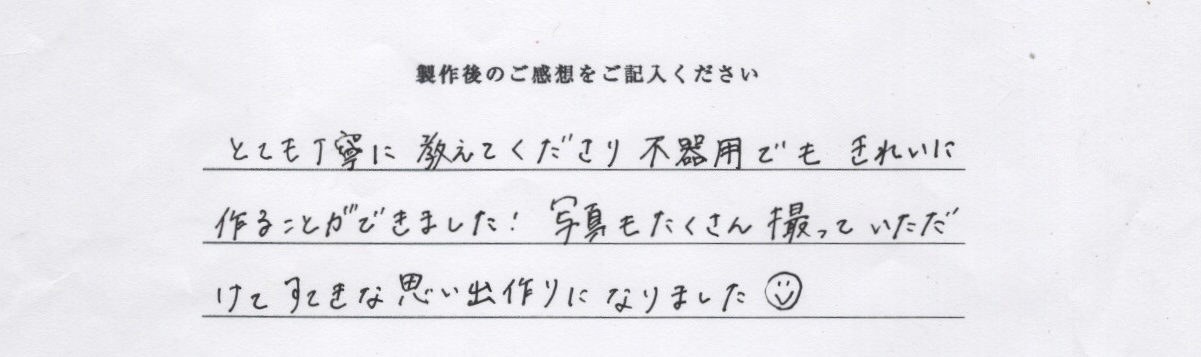 製作後のご感想をご記入ください
とても丁寧に 教えてくださり 不器用でも きれいに
作ることができました! 写真もたくさん 撮って いただ
けて すてきな 思い出作りに なりました☺